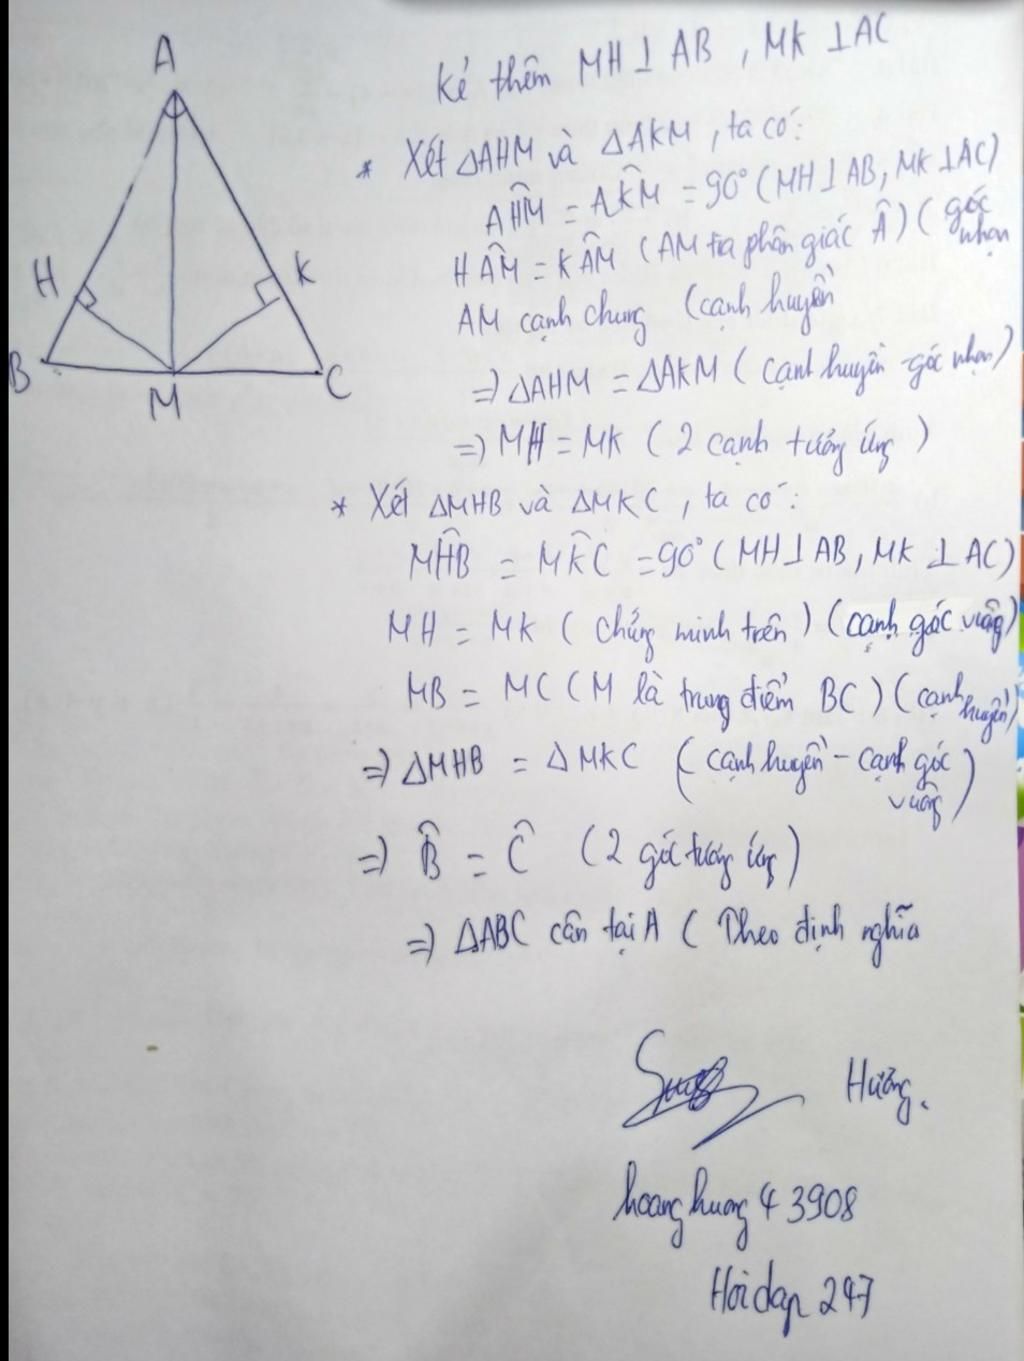 A
H
K
B
M
C
Kẻ thêm MH ⊥ AB , MK ⊥ AC
* Xét ΔAHM và ΔAKM , ta có :
AĤM = AK̂M = 90° (MH ⊥ AB, MK ⊥ AC)
HÂM = KÂM (AM tia phân giác Â) (góc
nhọn
AM cạnh chung (cạnh huyền
=) ΔAHM = ΔAKM ( cạnh huyền - góc nhọn)
=) MH = MK ( 2 cạnh tương ứng )
* Xét ΔMHB và ΔMKC , ta có :
MĤB = MK̂C = 90° ( MH ⊥ AB, MK ⊥ AC)
MH = MK ( chứng minh trên ) (cạnh góc vuông)
MB = MC ( M là trung điểm BC) ( cạnh
huyền)
=) ΔMHB = ΔMKC ( cạnh huyền - cạnh góc
vuông)
=) B̂ = Ĉ ( 2 góc tương ứng )
=) ΔABC cân tại A ( Theo định nghĩa
Hương.
hoanghuong43908
Hoidap 247